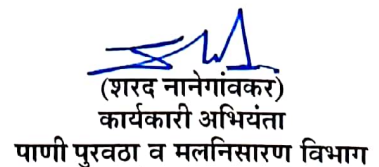 (शरद नानेगांवकर)
कार्यकारी अभियंता
पाणी पुरवठा व मलनिसारण विभाग